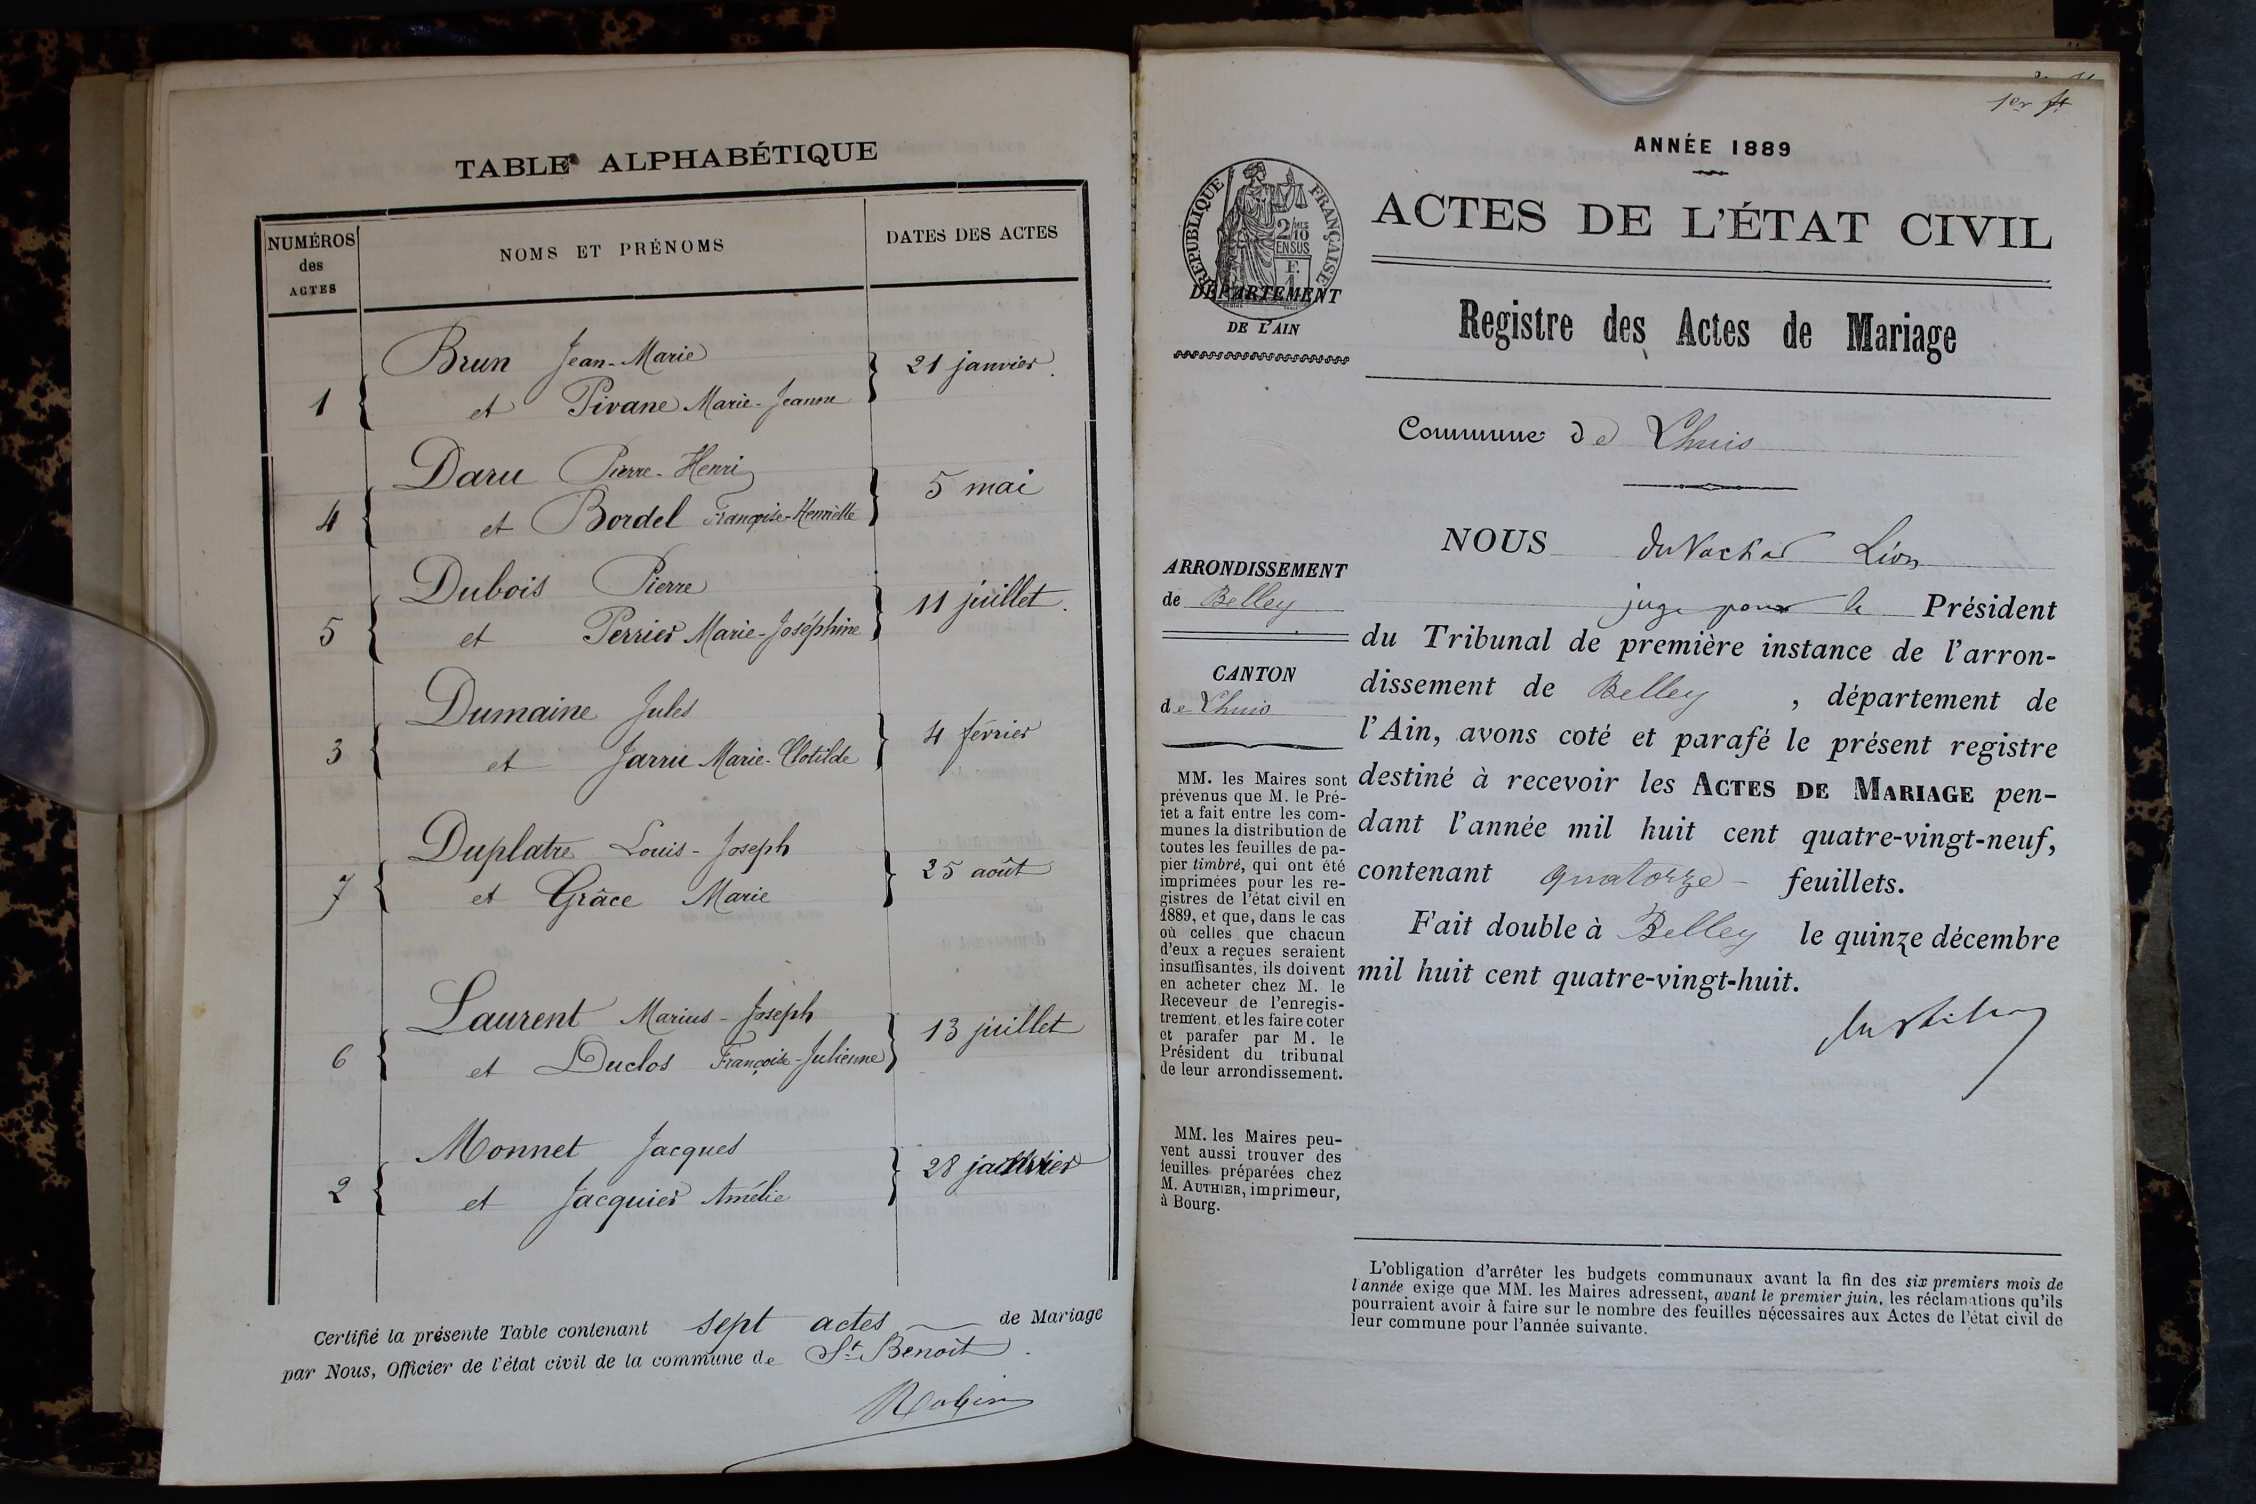 TABLE ALPHABÉTIQUE
NUMÉROS
des
ACTES
NOMS ET PRÉNOMS
DATES DES ACTES
Brun Jean-Marie
1 et Pivane Marie-Jeanne
21 janvier
Daru Pierre-Henri
4 et Bordel Françoise-Henriette
5 mai
Dubois Pierre
5 et Perrier Marie-Joséphine
11 juillet
Dumaine Jules
3 et Jarru Marie-Clotilde
4 février
Duplatre Louis-Joseph
7 et Grâce Marie
25 août
Laurent Marius-Joseph
6 et Duclos Françoise-Julienne
13 juillet
Monnet Jacques
2 et Jacquier Amélie
28 janvier
Certifié la présente Table contenant sept actes de Mariage
par Nous, Officier de l'état civil de la commune de St Benoit.
1er ft
ANNÉE 1889
RÉPUBLIQUE FRANÇAISE
2/10
EN SUS
F.
1
DÉPARTEMENT
DE L'AIN
ACTES DE L'ÉTAT CIVIL
Registre des Actes de Mariage
Commune de Lhuis
NOUS Léon
juge pour le Président
du Tribunal de première instance de l'arron-
dissement de Belley , département de
l'Ain, avons coté et parafé le présent registre
destiné à recevoir les ACTES DE MARIAGE pen-
dant l'année mil huit cent quatre-vingt-neuf,
contenant quatorze feuillets.
Fait double à Belley le quinze décembre
mil huit cent quatre-vingt-huit.
ARRONDISSEMENT
de Belley
CANTON
de Lhuis
MM. les Maires sont
prévenus que M. le Pré-
fet a fait entre les com-
munes la distribution de
toutes les feuilles de pa-
pier timbré, qui ont été
imprimées pour les re-
gistres de l'état civil en
1889, et que, dans le cas
où celles que chacun
d'eux a reçues seraient
insuffisantes, ils doivent
en acheter chez M. le
Receveur de l'enregis-
trement, et les faire coter
et parafer par M. le
Président du tribunal
de leur arrondissement.
MM. les Maires peu-
vent aussi trouver des
feuilles préparées chez
M. AUTHIER, imprimeur,
à Bourg.
L'obligation d'arrêter les budgets communaux avant la fin des six premiers mois de
l'année exige que MM. les Maires adressent, avant le premier juin, les réclamations qu'ils
pourraient avoir à faire sur le nombre des feuilles nécessaires aux Actes de l'état civil de
leur commune pour l'année suivante.